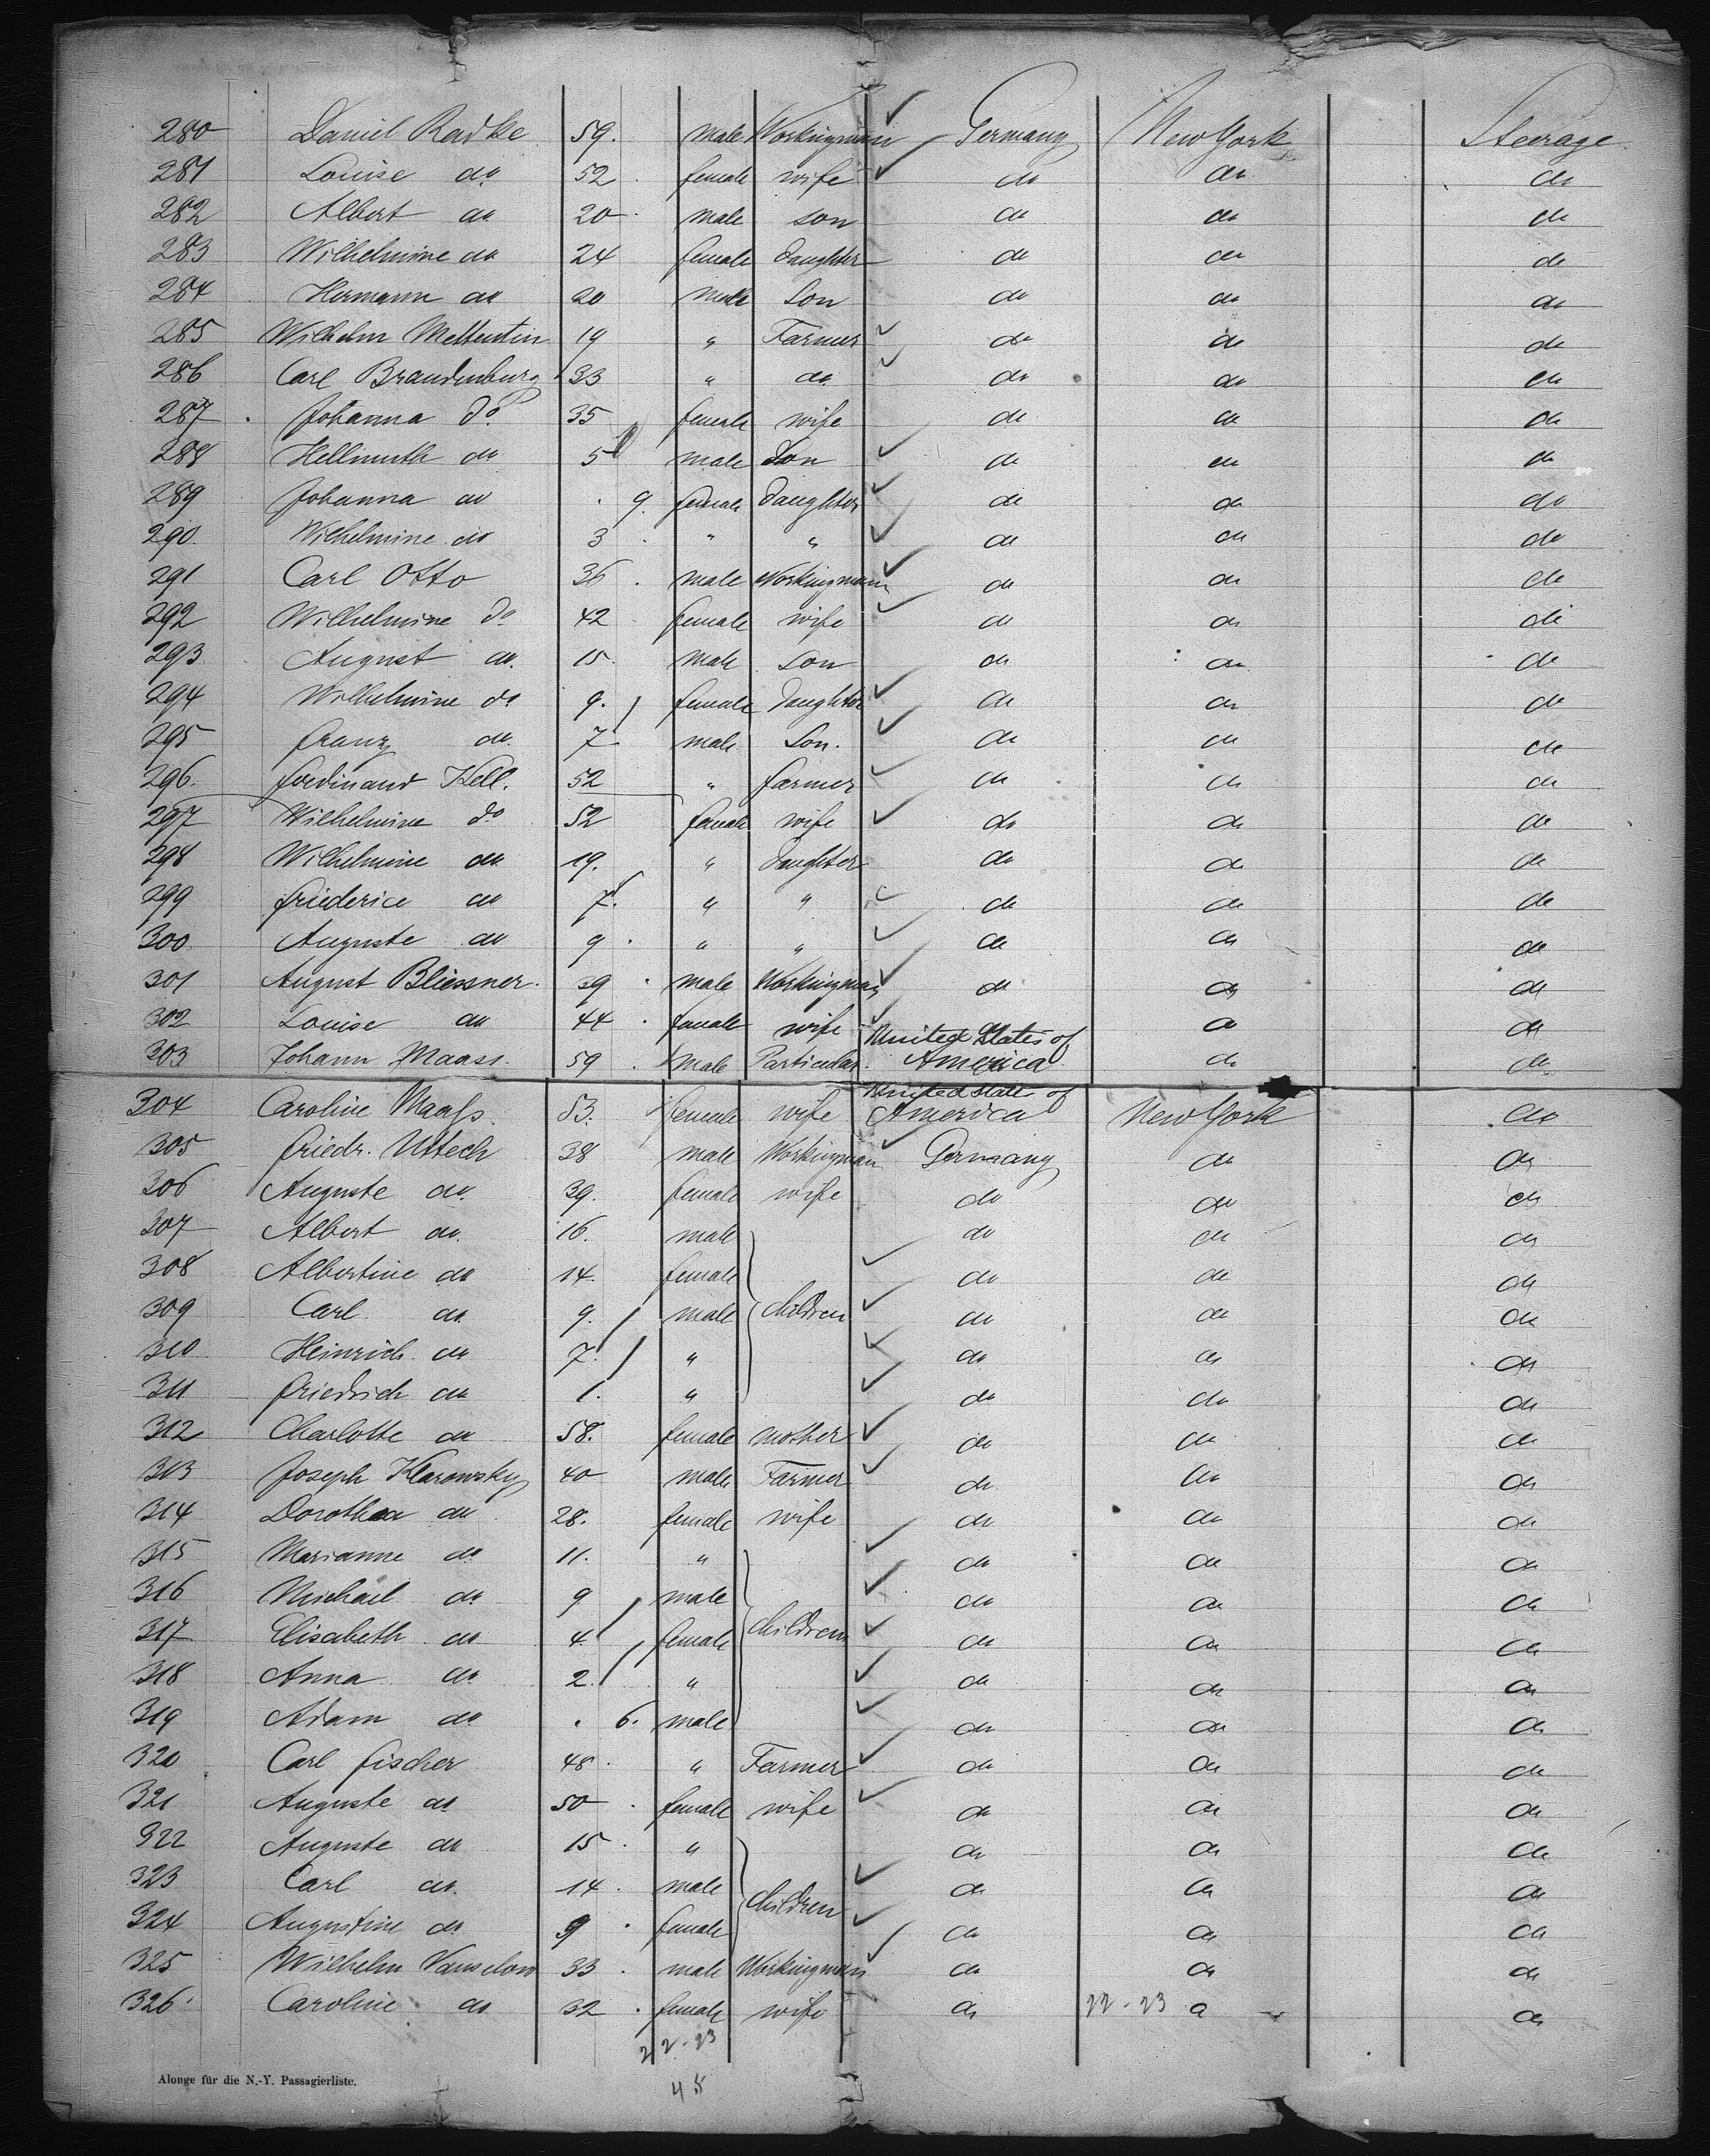 280 Daniel Radke 59. male Workingman Germany New York Steerage
281 Louise do 52 female wife do do do
282 Albert do 20 male son do do do
283 Wilhelmine do 24 female Daughter do do do
284 Hermann do 20 male Son do do do
285 Wilhelm Mellentin 19 " Farmer do do do
286 Carl Brandenburg 33 " do do do do
287 Johanna do 35 female wife do do do
288 Hellmuth do 5 male Son do do do
289 Johanna do 9 female Daughter do do do
290 Wilhelmine do 3 " " do do do
291 Carl Otto 36 male Workingman do do do
292 Wilhelmine do 42 female wife do do do
293 August do. 15. male Son do do do
294 Wilhelmine do 9. female Daughter do do do
295 Franz do. 7 male Son. do do do
296. Ferdinand Kell. 52 " farmer do do do
297 Wilhelmine do 52 female wife do do do
298 Wilhelmine do 19. " Daughter do do do
299 Friederice do 7. " " do do do
300 Auguste do 9 " " do do do
301 August Bliessner. 39 male Workingman do do do
302 Louise do 44 female wife do do do
303 Johann Maass. 59 male Particular. United States of America do do
304 Caroline Maass. 53. female wife United States of America New York do
305 Friedr. Uttech 38 male Workingman Germany do do
306 Auguste do. 39. female wife do do do
307 Albert do. 16. male do do do
308 Albertine do 14. female do do do
309 Carl do 9. male children do do do
310 Heinrich do 7. " do do do
311 Friedrich do 1. " do do do
312 Charlotte do 58. female mother do do do
313 Joseph Klarowsky 40 male Farmer do do do
314 Dorothea do 28. female wife do do do
315 Marianne do 11. " do do do
316 Michael do 9 male do do do
317 Elisabeth do 4 female children do do do
318 Anna do 2. " do do do
319 Adam do 6. male do do do
320 Carl Fischer 48 " Farmer do do do
321 Auguste do 50 female wife do do do
322 Auguste do 15 " do do do
323 Carl do. 14 male children do do do
324 Augustine do 9 female do do do
325 Wilhelm Vanselow 33 male Workingman do do do
326 Caroline do 32 female wife do 22-23 do do
22-23
Alonge für die N.-Y. Passagierliste.
45